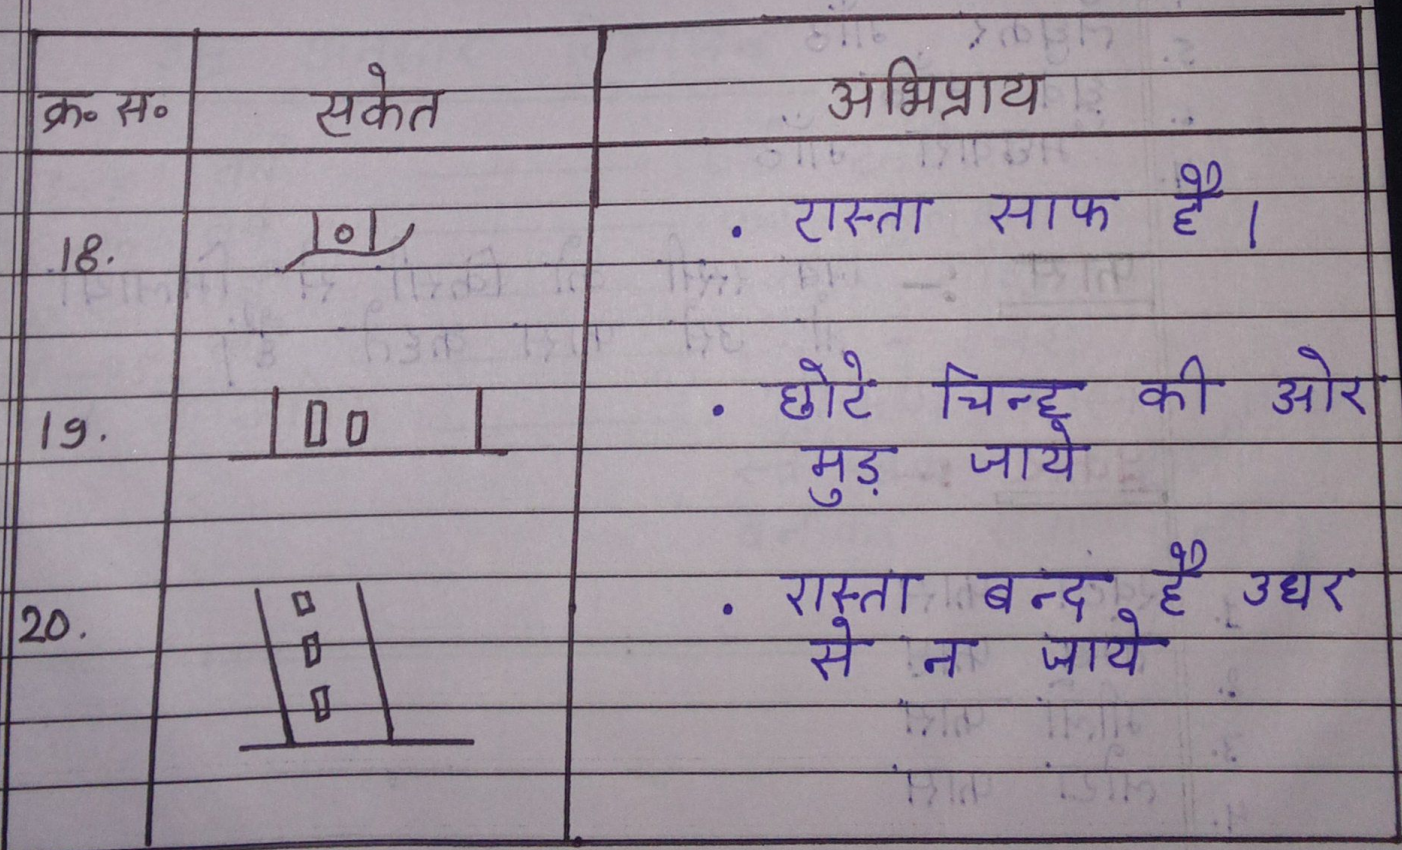 क्र॰ स॰ सकेत अभिप्राय
18. • रास्ता साफ है।
19. • छोटे चिन्ह की ओर
मुड़ जाये
20. • रास्ता बन्द है उधर
से ना जाये